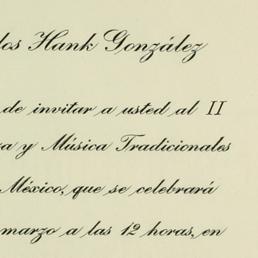 los Hank González
de invitar a usted al II
a y Música Tradicionales
México, que se celebrará
marzo a las 12 horas, en